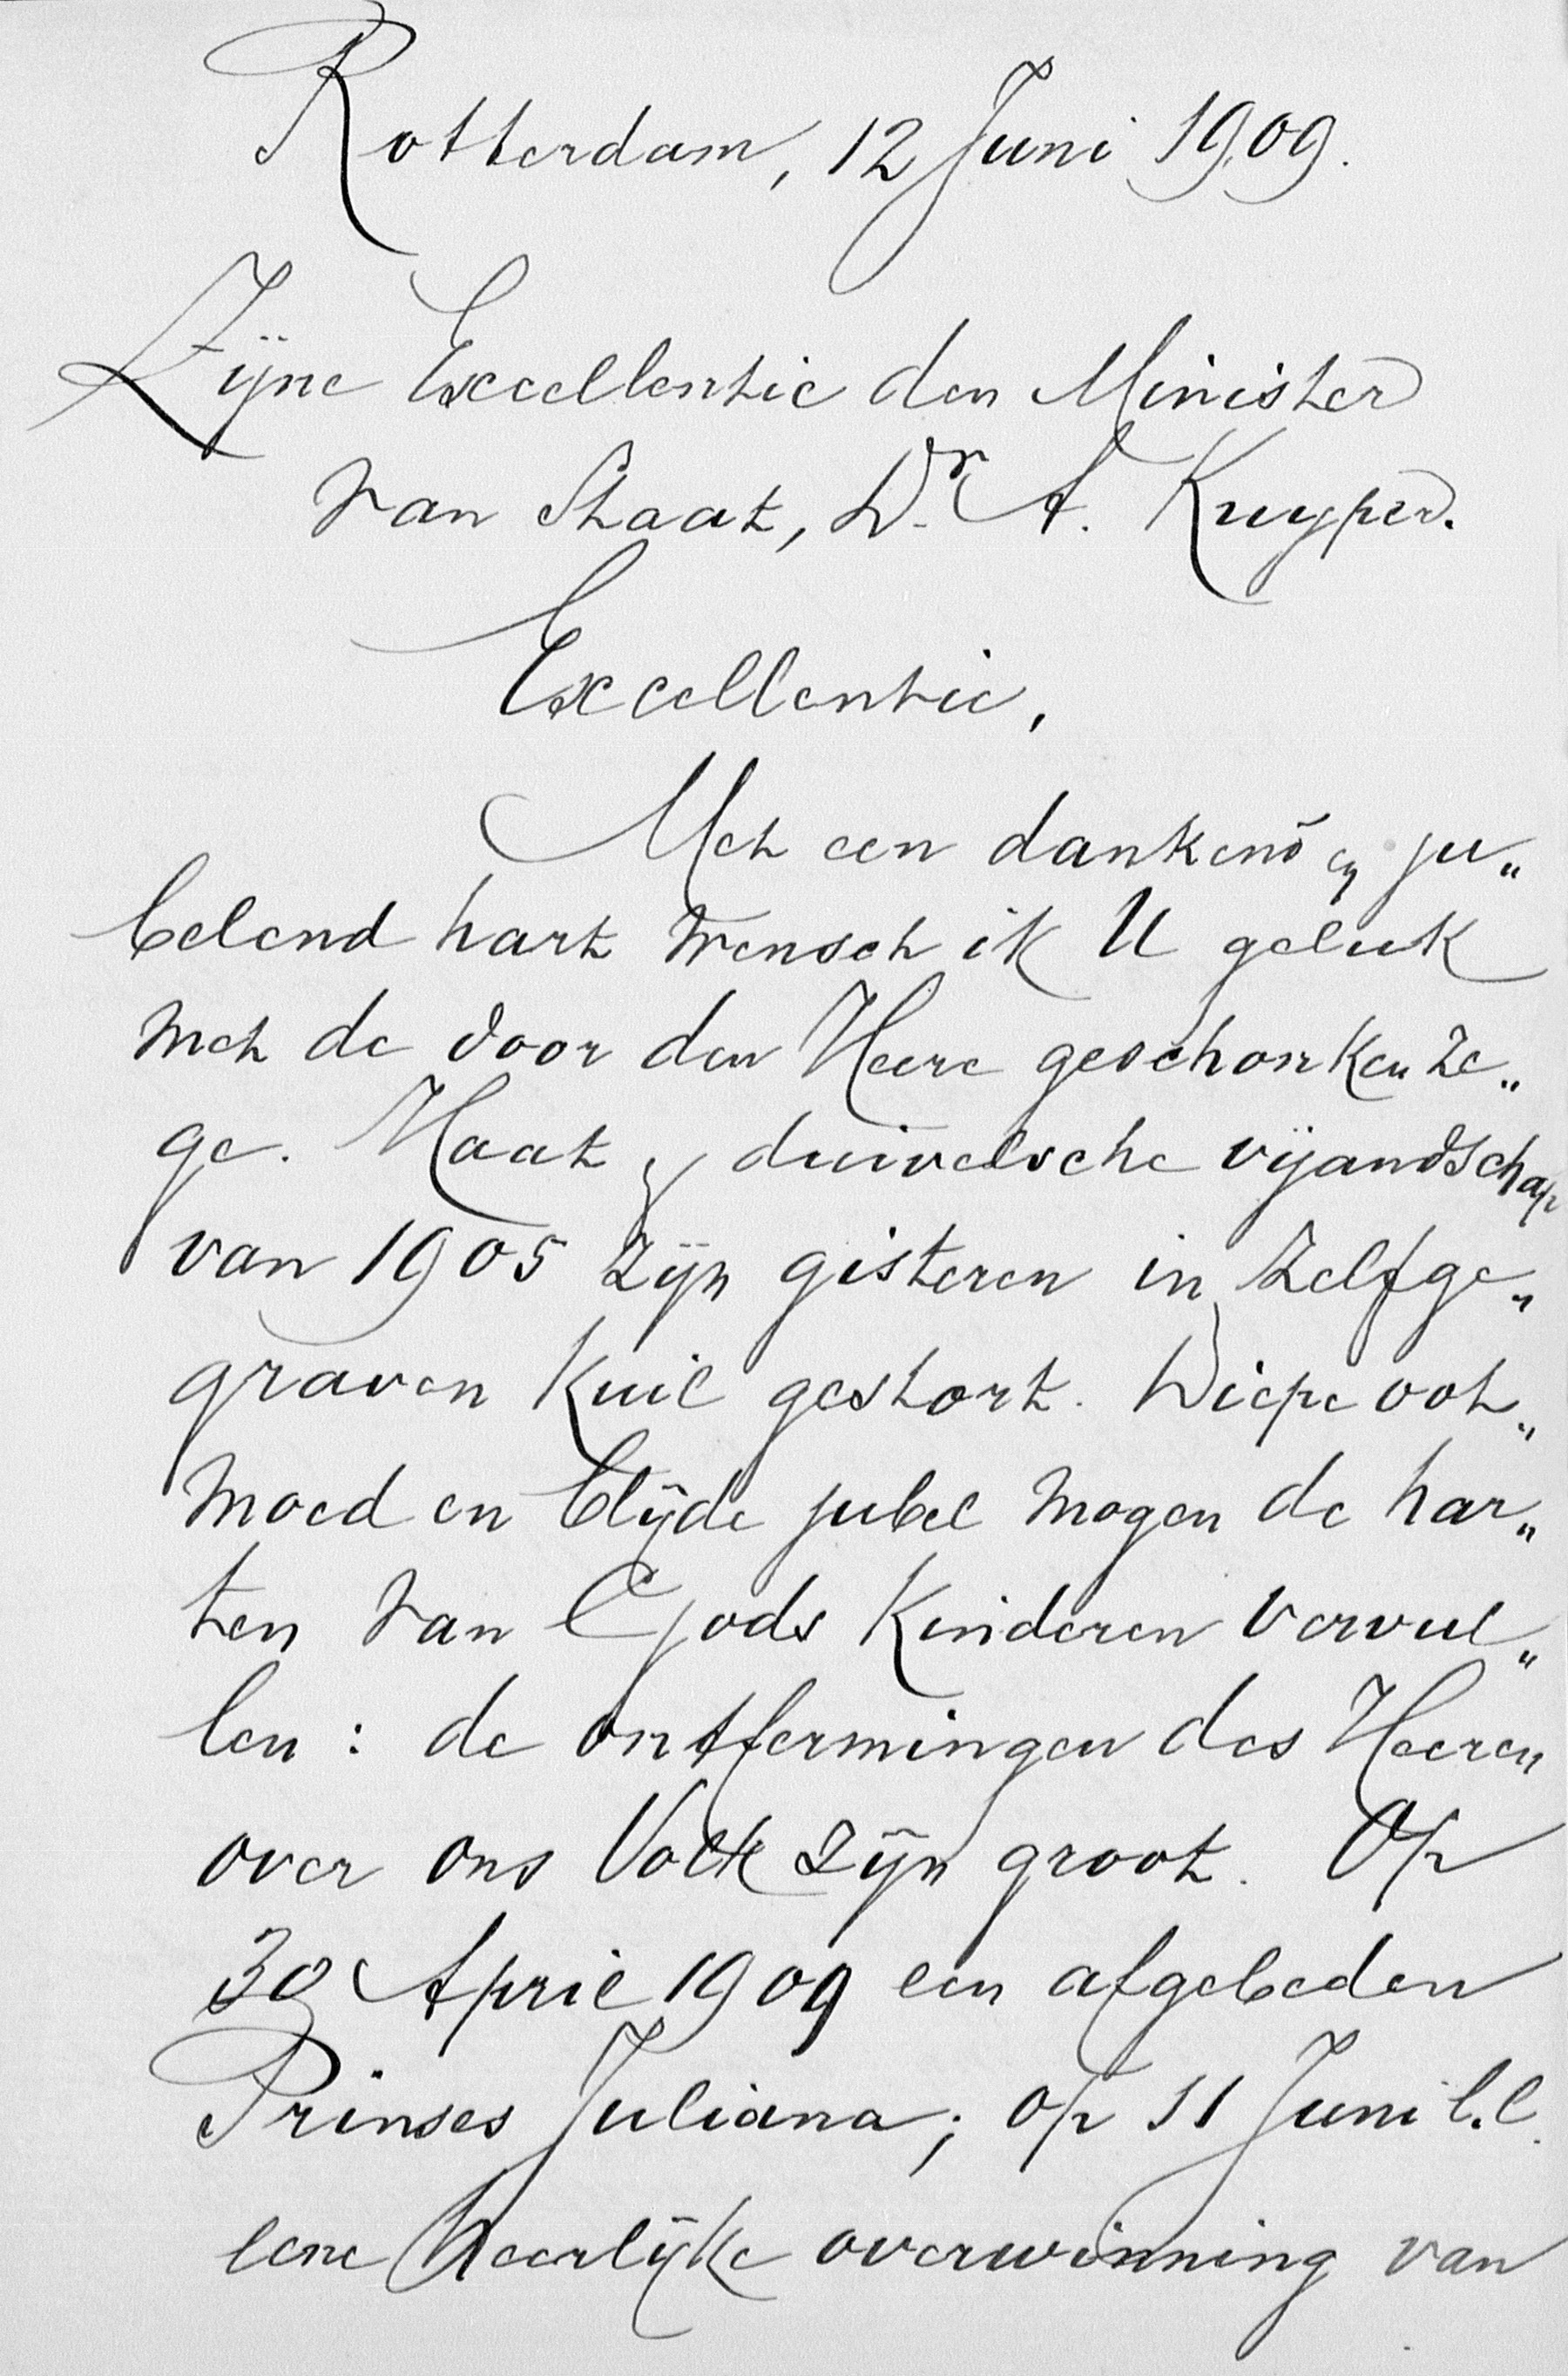 Rotterdam, 12 Juni 1909.
Zijne Excellentie den Minister
van Staat, Dr. A. Kuyper.
Excellentie,
Met een dankend en ju„
belend hart wensch ik U geluk
met de door den Heere geschonken ze„
ge. Haat en duivelsche vijandschap
van 1905 zijn gisteren in zelfge„
graven kuil gestort. Diepe oot„
moed en blijde jubel mogen de har„
ten van Gods kinderen vervul„
len: de ontfermingen des Heeren
over ons Volk zijn groot. Op
30 April 1909 een afgebeden
Prinses Juliana; op 11 Juni l.l.
eene heerlijke overwinning van